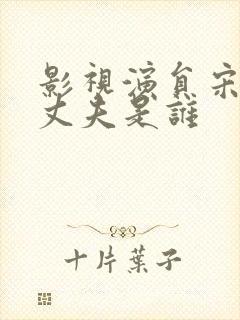 影視演員宋
丈夫是誰
十片葉子